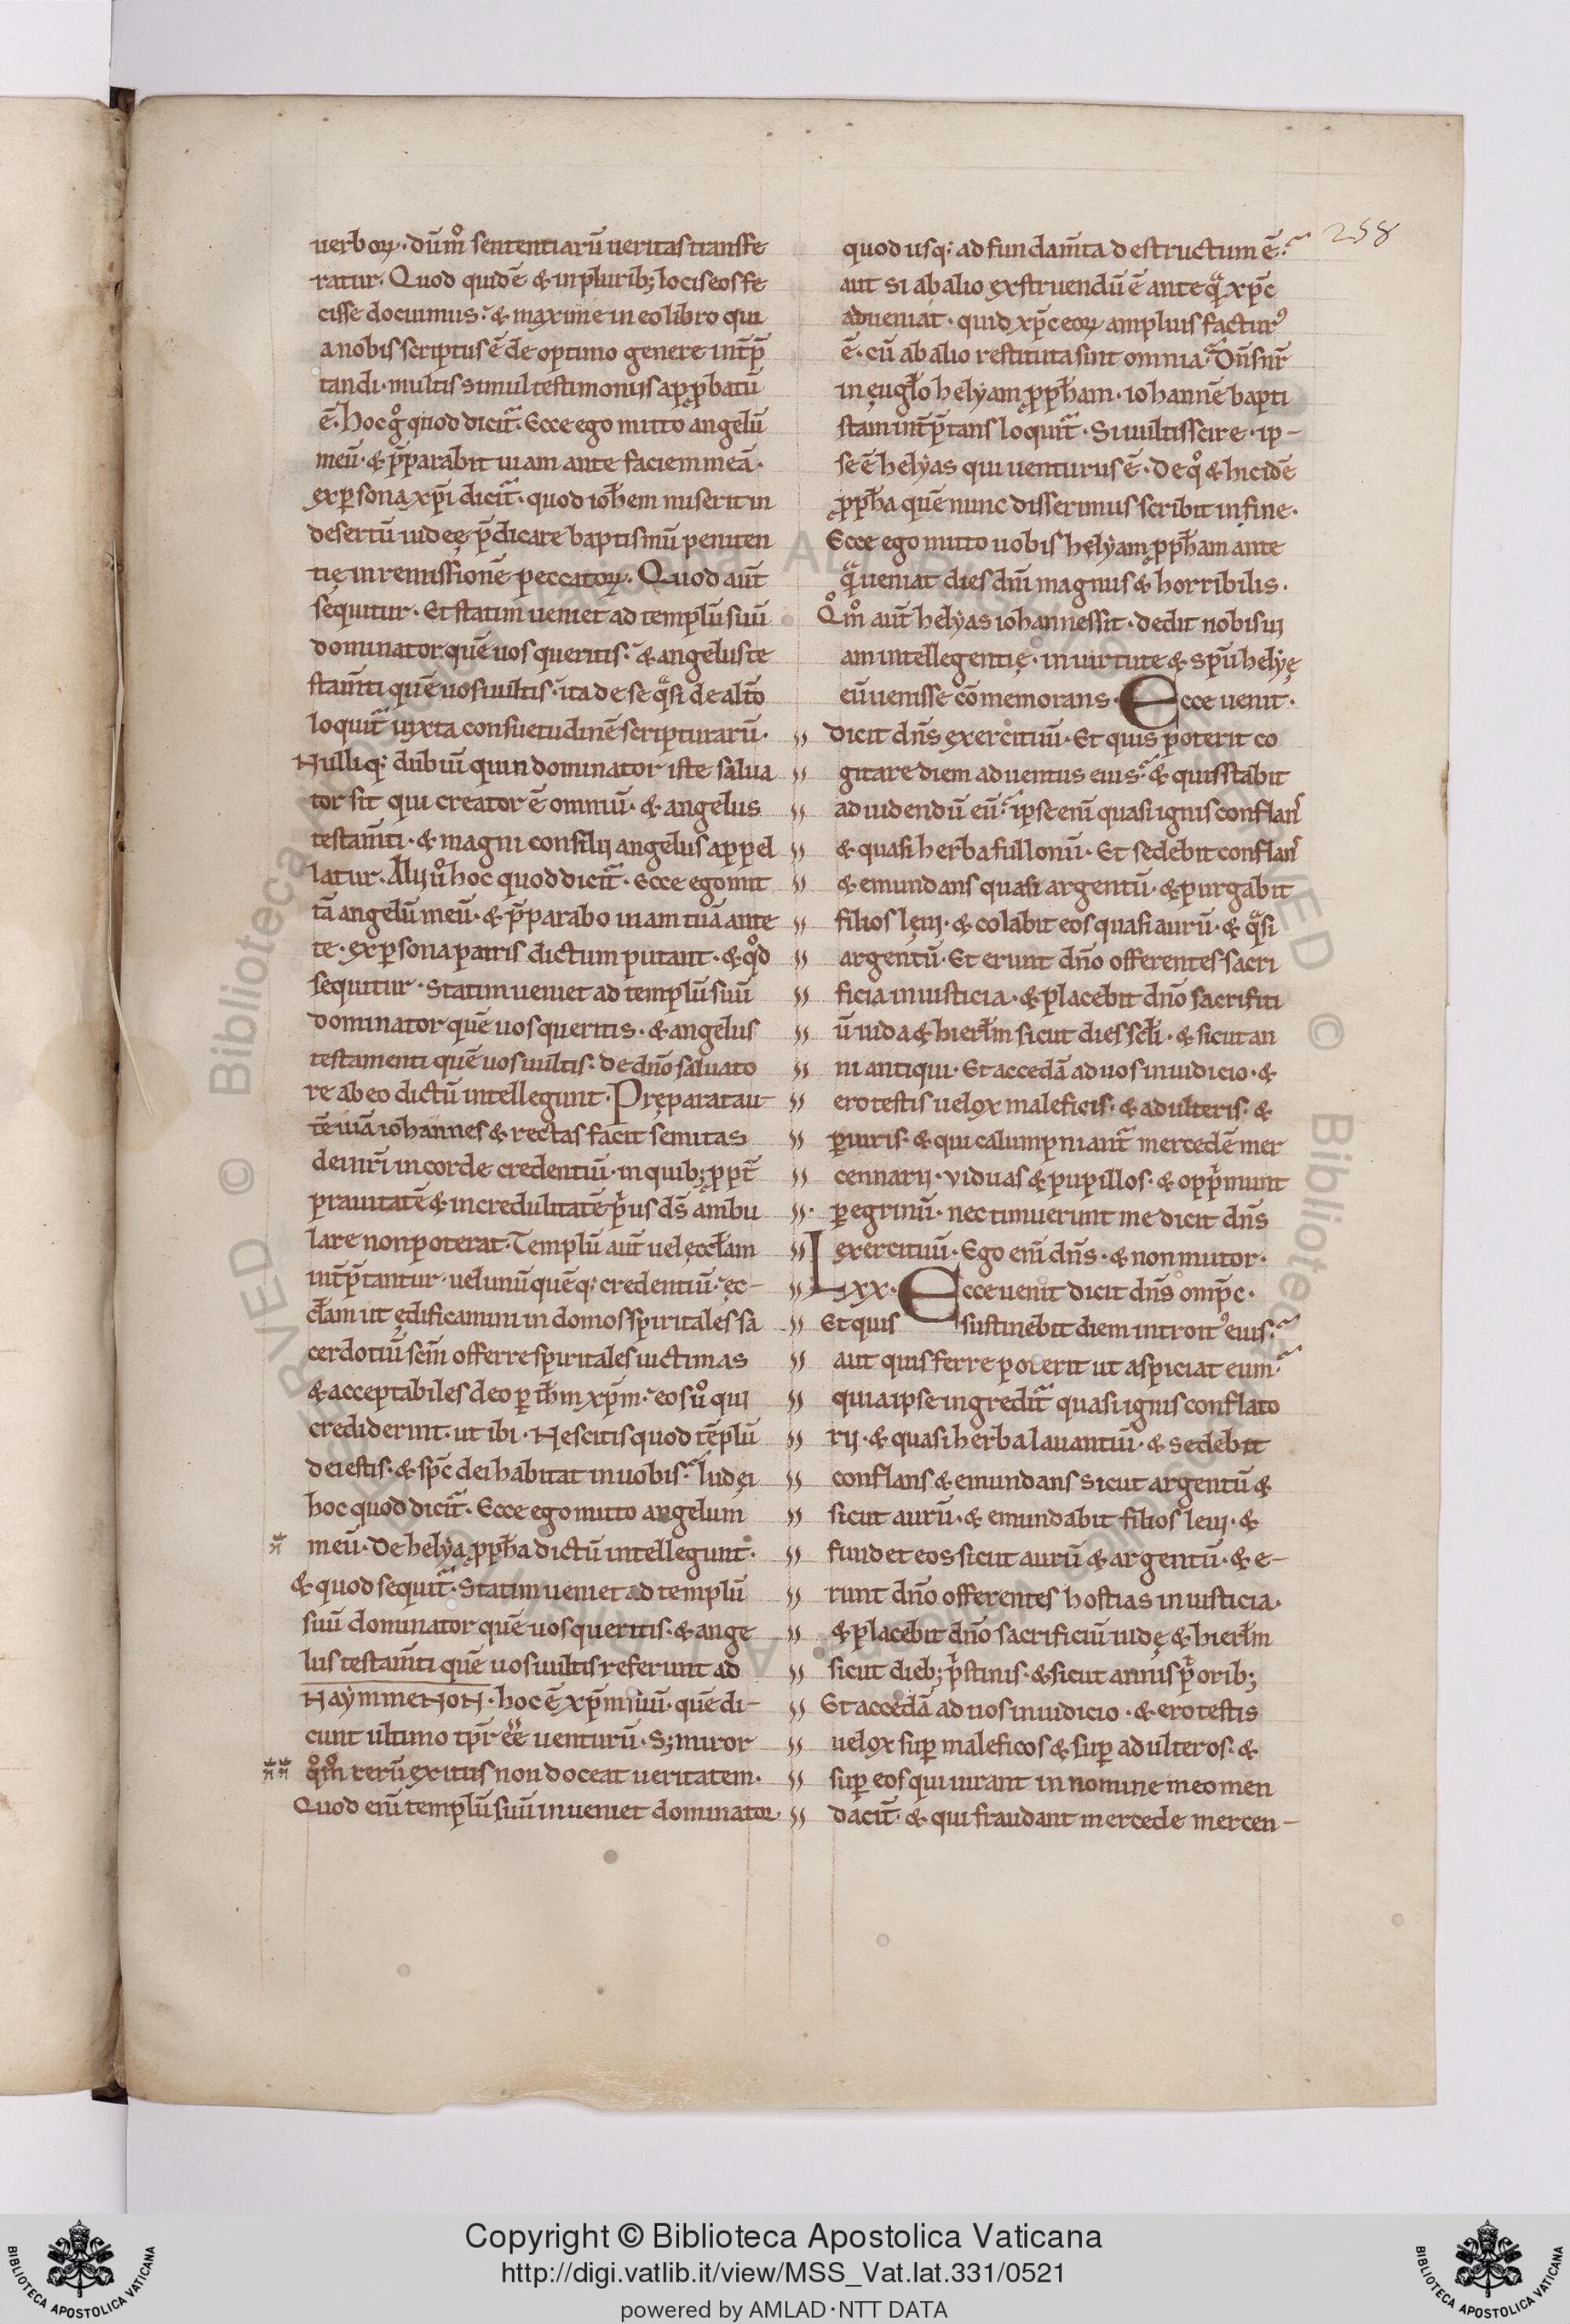 uerboꝝ· dūm̊ sententiarū ueritas transfe
ratur· Quod quidē & in plurib; locis eos fe
cisse docuimus· & maxime in eo libro qui
a nobis scriptus ē de optimo genere int̄p̄
tandi· multis simul testimoniis app̱batū
ē· hoc g̊ quod dicit᷑· Ecce ego mitto angelū
meū· & p̄parabit uiam ante faciem meā·
ex ꝑsona xp̄i dicit᷑· quod ioh̄em miserit in
desertū iudeę p̄dicare baptismū peniten
tię in remissionē peccatoꝝ· Quod aūt
sequitur· Et statim ueniet ad templū suū
dominator quē uos queritis· & angelus te
stam̄ti quē uos uultis· ita de se qͣsi de alt̄o
loquit᷑ iuxta consuetudinē scripturarū·
Nulliq; dubiū quin dominator iste salua
tor sit qui creator ē omniū· & angelus
testam̄ti· & magni consilij angelus appel
latur· Alij ů hoc quod dicit᷑· Ecce ego mit
tā angelū meū· & p̄parabo uiam tuā ante
te· ex ꝑsona patris dictum putant· & qd̊
sequitur· Statim ueniet ad templū suū
dominator quē uos queritis· & angelus
testamenti quē uos uultis· de dn̄o saluato
re ab eo dictū intellegunt· Pręparat au
tē uiā iohannes & rectas facit semitas
dei nr̄i in corde credentiū· in quib; ꝓpt̄
prauitatē & incredulitatē pͥus ds̄ ambu
lare non poterat· Templū aūt uel ęccl̄am
int̄p̄tantur· uel unūquēq; credentiū· ęc-
cl̄am ut ędificamini in domos spiritales sa
cerdotiū sc̄m offerre spiritales uictimas
& acceptabiles deo ꝑ ih̄m xp̄m· eos ů qui
crediderint· ut ibi· Nescitis quod tēplū
dei estis· & sp̄c dei habitat in uobis· Iudęi
hoc quod dicit᷑· Ecce ego mitto angelum
meū· De helẏa ꝓph̄a dictū intellegunt·
& quod sequit᷑· Statim ueniet ad templū
suū dominator quē uos queritis· & ange
lus testam̄ti quē uos uultis referunt ad
HaẏmmeNoN· hoc ē xp̄m suū· quē di-
cunt ultimo tp̄r ēē uenturū· S; miror
qm̊ rerū exitus non doceat ueritatem·
Quod enī templū suū inueniet dominator
258
quod usq; ad fundam̄ta destructum ē·
aut si ab alio exstruendū ē ante qͣ xp̄c
adueniat· quid xp̄c eoꝝ amplius facturꝰ
ē· cū ab alio restituta sint omnia· Dn̄s nr̄
in ęugl̄o helẏam ꝓph̄am· iohannē bapti
stam int̄p̄tans loquit᷑· Si uultis scire· ip-
se ē helyas qui uenturus ē· de q̊ & hic idē
ꝓph̄a quē nunc disserimus scribit in fine·
Ecce ego mitto uobis hęlẏam ꝓph̄am ante
qͣ ueniat dies dn̄i magnus & horribilis·
Qm̊ aūt helyas iohannes sit· dedit nobis ui
am intellegentię· in uirtute & sp̄u helyę
eū uenisse cōmemorans· Ecce uenit·
dicit dn̄s exercituū· Et quis poterit co
gitare diem aduentus eius· & quis stabit
ad uidendū eū· ipse enī quasi ignis conflans
& quasi herba fullonū· Et sedebit conflans
& emundans quasi argentū· & purgabit
filios lęui· & colabit eos quasi aurū· & qͣsi
argentū· Et erunt dn̄o offerentes sacri
ficia in iusticia· & placebit dn̄o sacrifiti
ū iuda & hierl̄m sicut dies scl̄i· & sicut an
ni antiqui· Et accedā ad uos in iudicio· &
ero testis uelox maleficis· & adulteris· &
ꝑiuris· & qui calumpniant᷑ mercedē mer
cennarij· viduas & pupillos· & oppͥmunt
ꝑegrinū· nec timuerunt me dicit dn̄s
exercituū· Ego enī dn̄s· & non mutor·
Lxx· Ecce uenit dicit dn̄s omp̄c·
Et quis sustinebit diem introitꝰ eius·
aut quis ferre poterit ut aspiciat eum·
quia ipse ingredit᷑ quasi ignis conflato
rij· & quasi herba lauantiū· & sedebit
conflans & emundans sicut argentū &
sicut aurū· & emundabit filios leui· &
fundet eos sicut aurū & argentū· & e-
runt dn̄o offerentes hostias in iusticia·
& placebit dn̄o sacrificiū iudę & hierl̄m
sicut dieb; pͥstinis· & sicut annis pͥorib;
Et accedā ad uos in iudicio· & ero testis
uelox suꝑ maleficos & suꝑ adulteros· &
suꝑ eos qui iurant in nomine meo men
daciū· & qui fraudant mercede mercen-
Copyright © Biblioteca Apostolica Vaticana
http://digi.vatlib.it/view/MSS_Vat.lat.331/0521
powered by AMLAD·NTT DATA
BIBLIOTECA APOSTOLICA VATICANA
BIBLIOTECA APOSTOLICA VATICANA